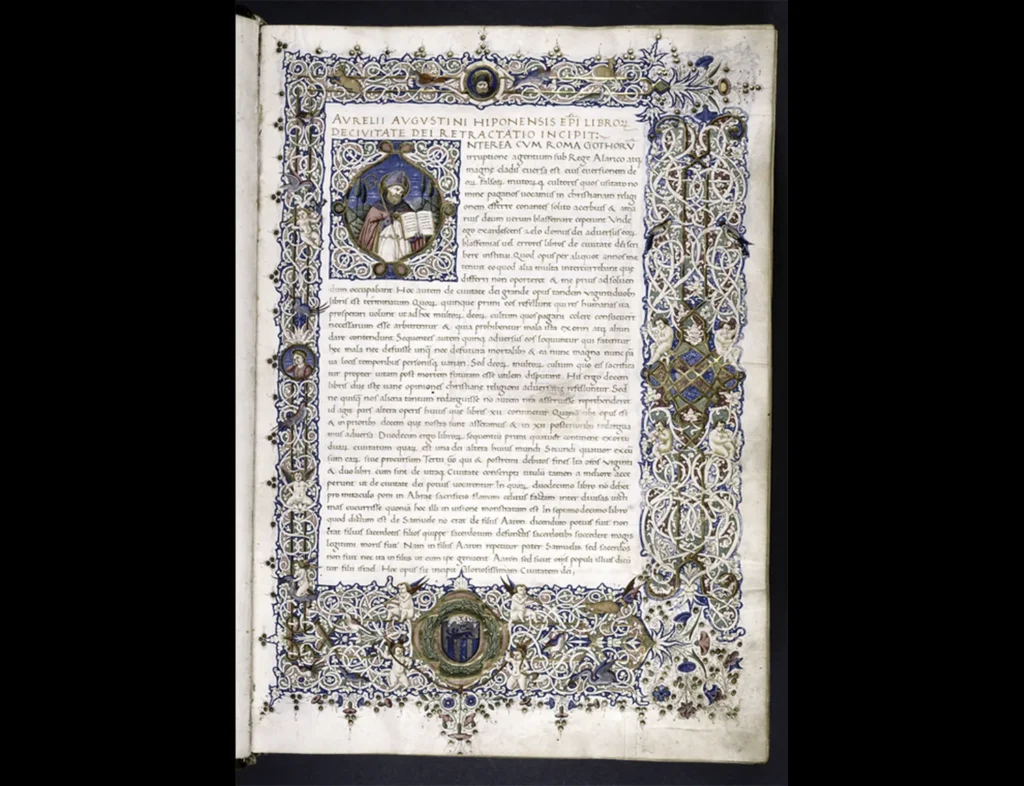 AVRELII AVGVSTINI HIPONENSIS EPI LIBROꝜ
DECIVITATE DEI RETRACTATIO INCIPIT:
NTEREA CVM ROMA GOTHORV̄
irruptione agentium sub Rege Alarico atq;
magne cladis euersa est. eius euersionem de
oꝝ falsoꝝ multoꝝ q; cultores quos usitato no
mine paganos uocamus in christianam religi
onem referre conantes solito acerbius & ama
rius deum uerum blasfemare ceperunt Vnde
ego exardescens zelo domus dei aduersus eoꝝ
blasfemias uel errores libros de ciuitate dei scri
bere institui. Quod opus per aliquot annos me
tenuit eo quod alia multa intercurrebant que
differri non oporteret & me prius ad soluen
dum occupabant. Hoc autem de ciuitate dei grande opus tandem uigintiduob;
libris est terminatum Quoꝝ quinque primi eos refellunt qui res humanas ita
prosperari uolunt ut ad hoc multoꝝ deoꝝ cultum quos pagani colere consueuert̄
necessarium esse arbitrentur & quia prohibentur mala ista exoriri atq; abun
dare contendunt. Sequentes autem quinq; aduersus eos loquuntur qui fatentur
hec mala nec defuisse unq̄ nec defutura mortalib; & ea nunc magna nunc pa
ua locis temporibus personisq; uariari. Sed deoꝝ multoꝝ cultum quo eis sacrifica
tur propter uitam post mortem futuram esse utilem disputant. His ergo decem
libris due iste uane opiniones christiane religioni aduersarie refelluntur Sed
ne quisq̄ nos aliena tantum redarguisse no autem nr̄a asseruisse reprehenderet
id agit pars altera operis huius que libris xii continetur Quanq̄ ubi opus est
& in priorib; decem que nostra sunt asseramus & in xii posteriorib; redargua
mus aduersa. Duodecim ergo libroꝝ sequentiū primi quatuor continent exortū
duaꝝ ciuitatum quaꝝ est una dei altera huius mundi Secundi quatuor excur
sum eaꝝ siue procursum Tertii qui & postremi debitos fines Ita oēs uiginti
& duo libri cum sint de utraq; Ciuitate conscripti titulū tamen a meliore acce
perunt ut de ciuitate dei potius uocarentur In quoꝝ duodecimo libro no debet
pro miraculo poni in Abrae sacrificio flamam celitus factam inter diuisas uicti
mas cucurrisse quoniā hoc illi in uisione monstratum est In septimo decimo libro
quod dictum est de Samuele no erat de filiis Aaron dicendum potius fuit non
erat filius sacerdotis filios quippe sacerdotum defunctis sacerdotibus succedere magis
legitimi moris fuit Nam in filiis Aaron repetitur pater Samuelis sed sacerdos
non fuit nec ita in filiis ut eum ipe genuerit Aaron sed sicut oēs populi illius dicū
tur filii israel. Hoc opus sic incipit Gloriosissimam Ciuitatem dei;